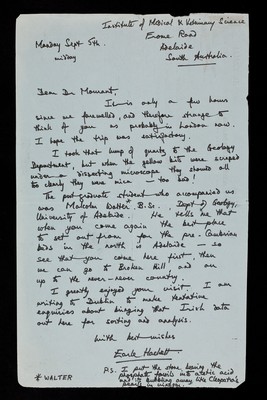 Institute of Medical & Veterinary Science
Frome Road
Adelaide
South Australia.
Monday Sept 5th.
midday
Dear Dr Mourant,
It is only a few hours
since we farewelled, and therefore strange to
think of you as probably in London now.
I hope the trip was satisfactory.
I took that lump of quartz to the Geology
Department, but when the yellow bits were scraped
under a dissecting microscope they showed all
too clearly they were mica — too bad!
The post-graduate student who accompanied us
was Malcolm B.Sc. Dept of Geology,
University of Adelaide. He tells me that
when you come again the best place
to set out from, for the pre-Cambrian
beds is the north of Adelaide — so
see that you come here first, then
we can go to Broken Hill, and on
up to the never-never country.
I greatly enjoyed your visit. I am
writing to Dublin to make tentative
enquiries about bringing that Irish data
out here for sorting and analysis.
With best wishes
Earle Hackett
PS. I put the stone bearing the
fossils into acetic acid
and it's bubbling away like Cleopatra's
pearls in vinegar.
# WALTER